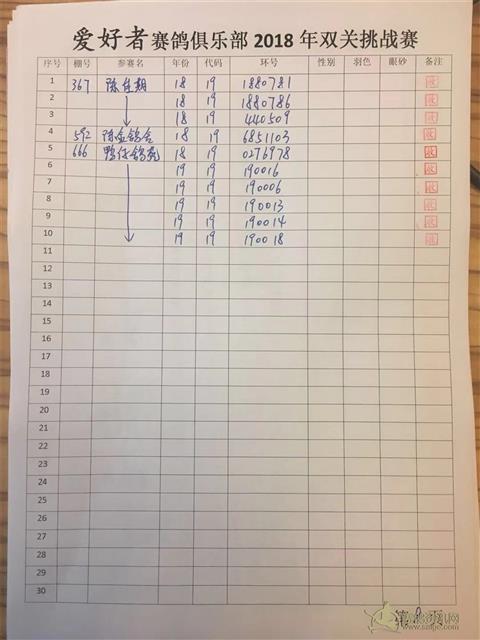 爱好者赛鸽俱乐部2018年双关挑战赛
序号 棚号 参赛名 年份 代码 环号 性别 羽色 眼砂 备注
1 367 陈佳期 18 19 1880781
2 18 19 1880786
3 18 19 440509
4 592 陈金鸽舍 18 19 6851103
5 666 鸭仔鸽苑 18 19 0276978
6 19 19 190016
7 19 19 190006
8 19 19 190013
9 19 19 190014
10 19 19 190018
11
12
13
14
15
16
17
18
19
20
21
22
23
24
25
26
27
28
29
30
第 页